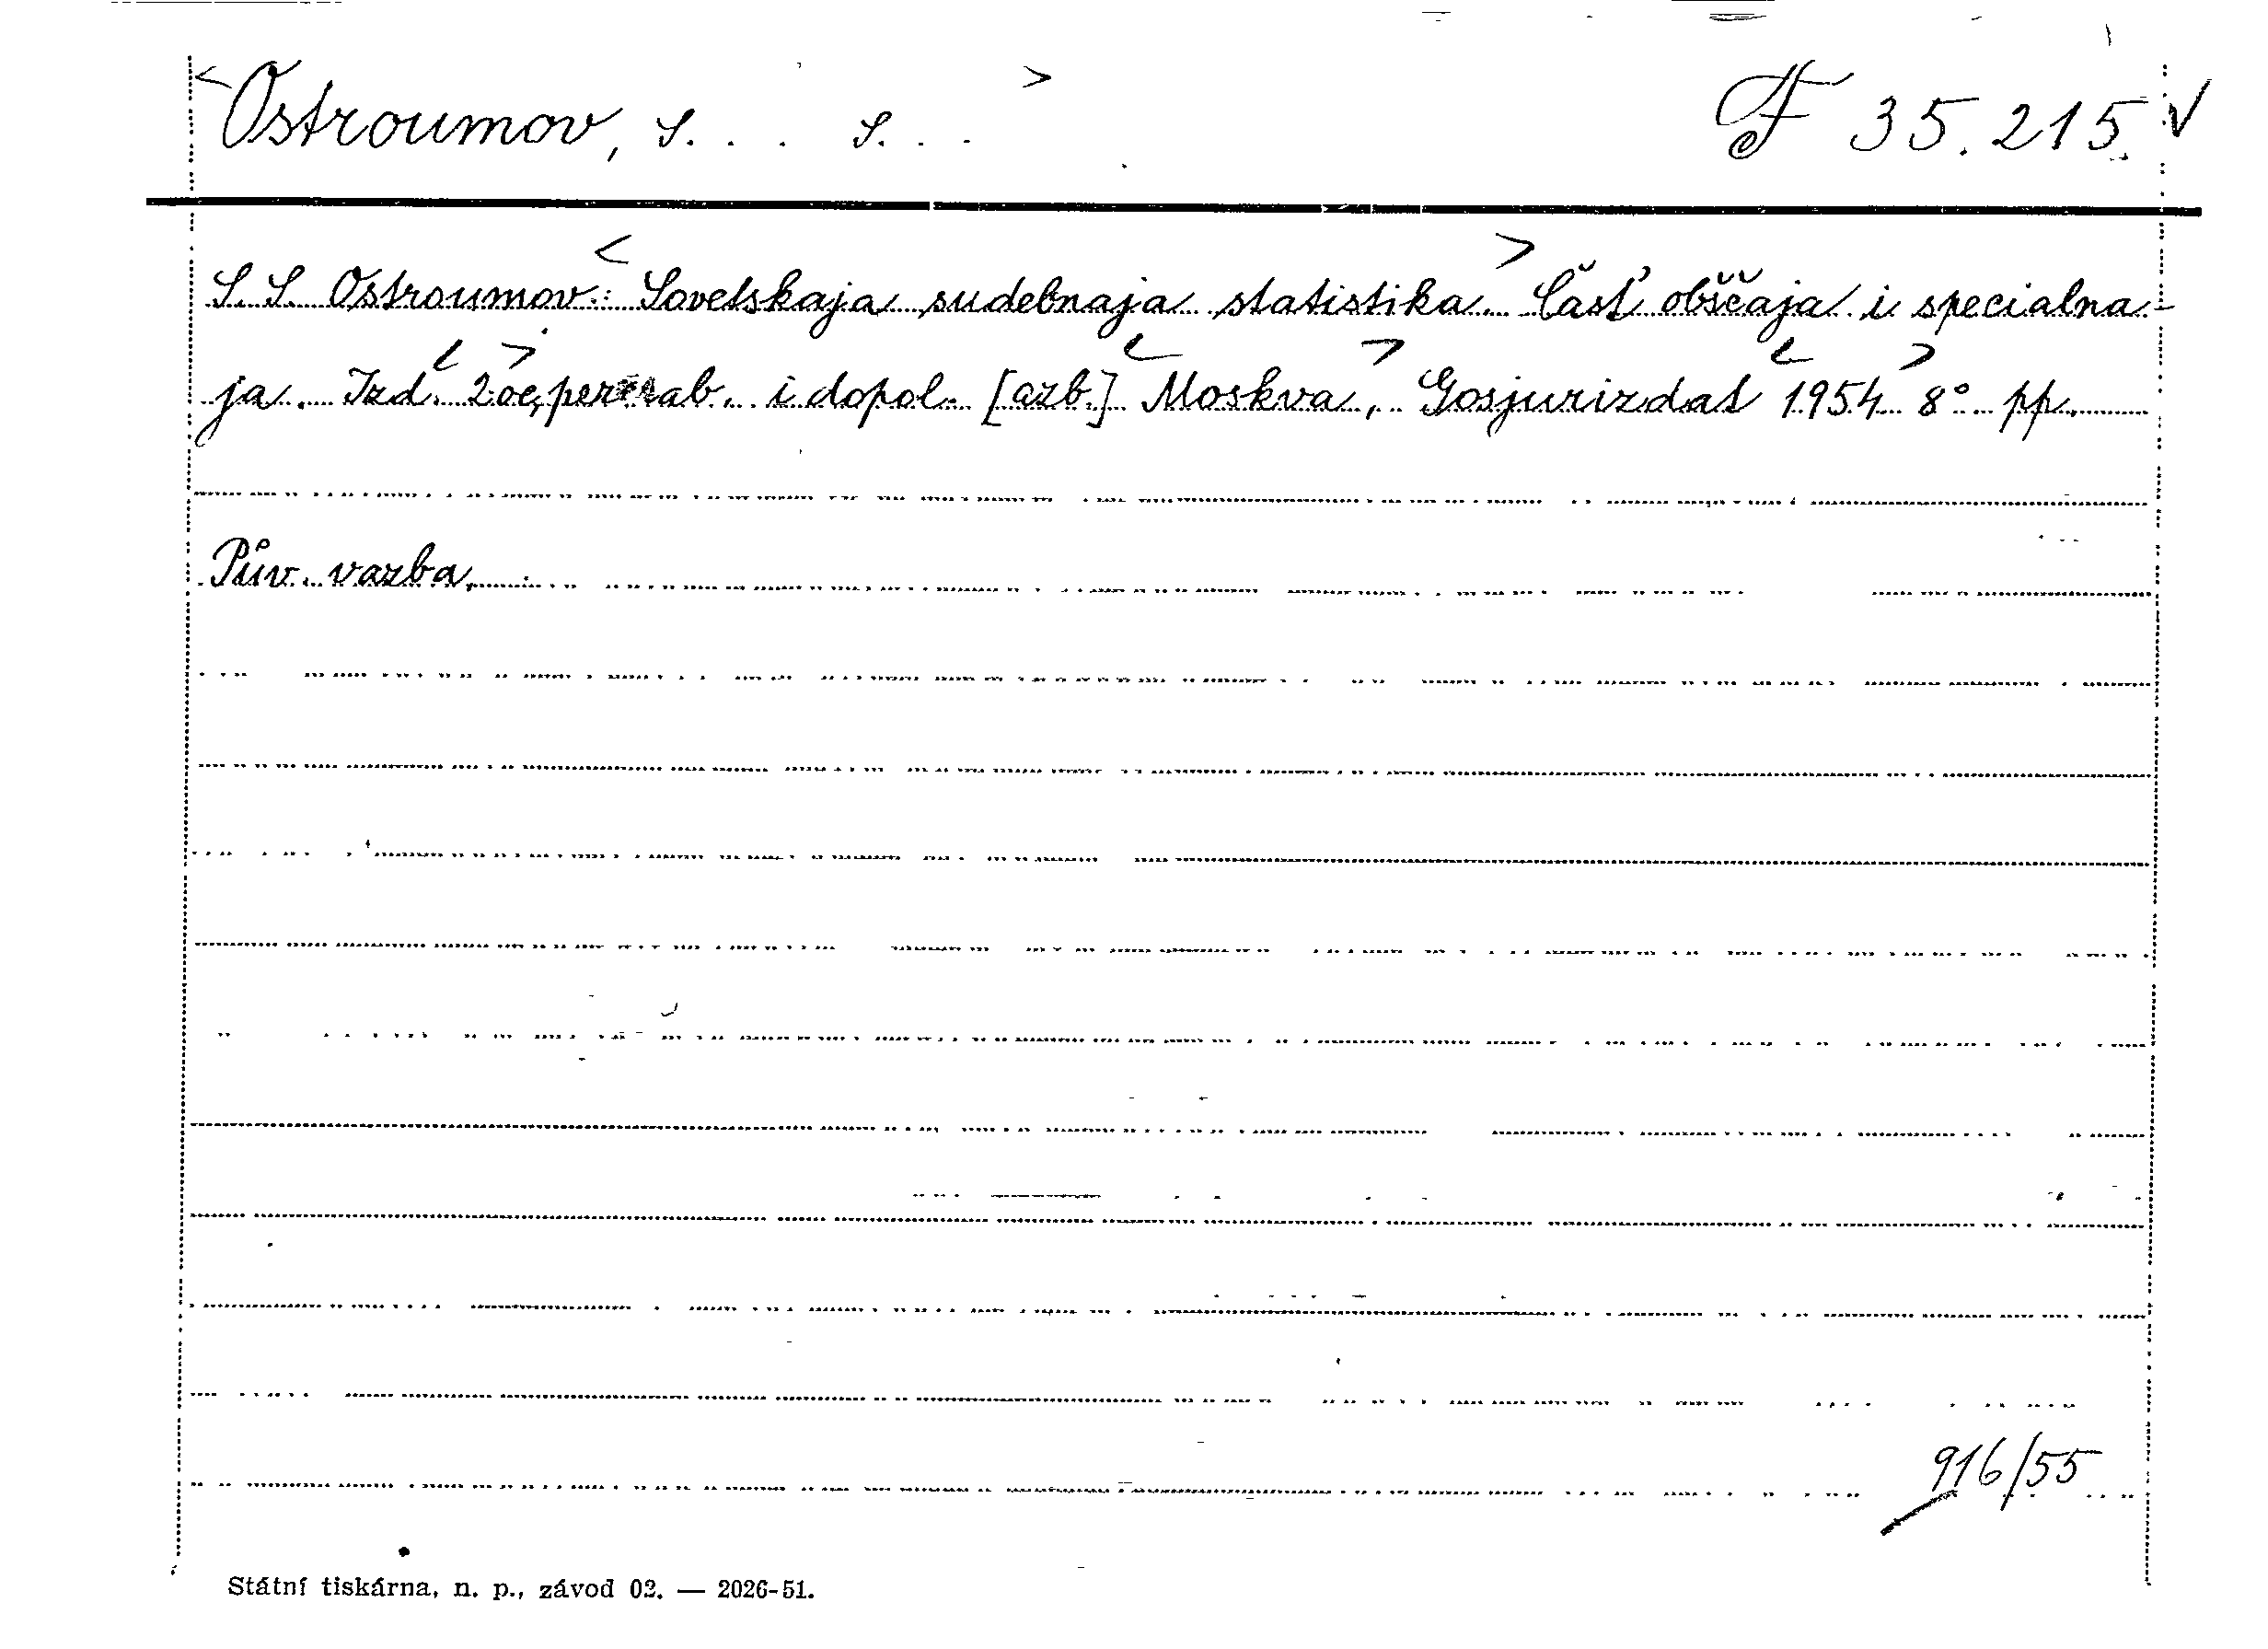 <Ostroumov, S... S...> F 35.215. √
S. S. Ostroumov: <Sovetskaja sudebnaja statistika.> Časť obščaja i specialna-
ja. Izd. <2>oe, pererab. i dopol. [azb.] <Moskva>, Gosjurizdat <1954> 8° pp.
Pův. vazba.
916/55
Státní tiskárna, n. p., závod 02. — 2026-51.